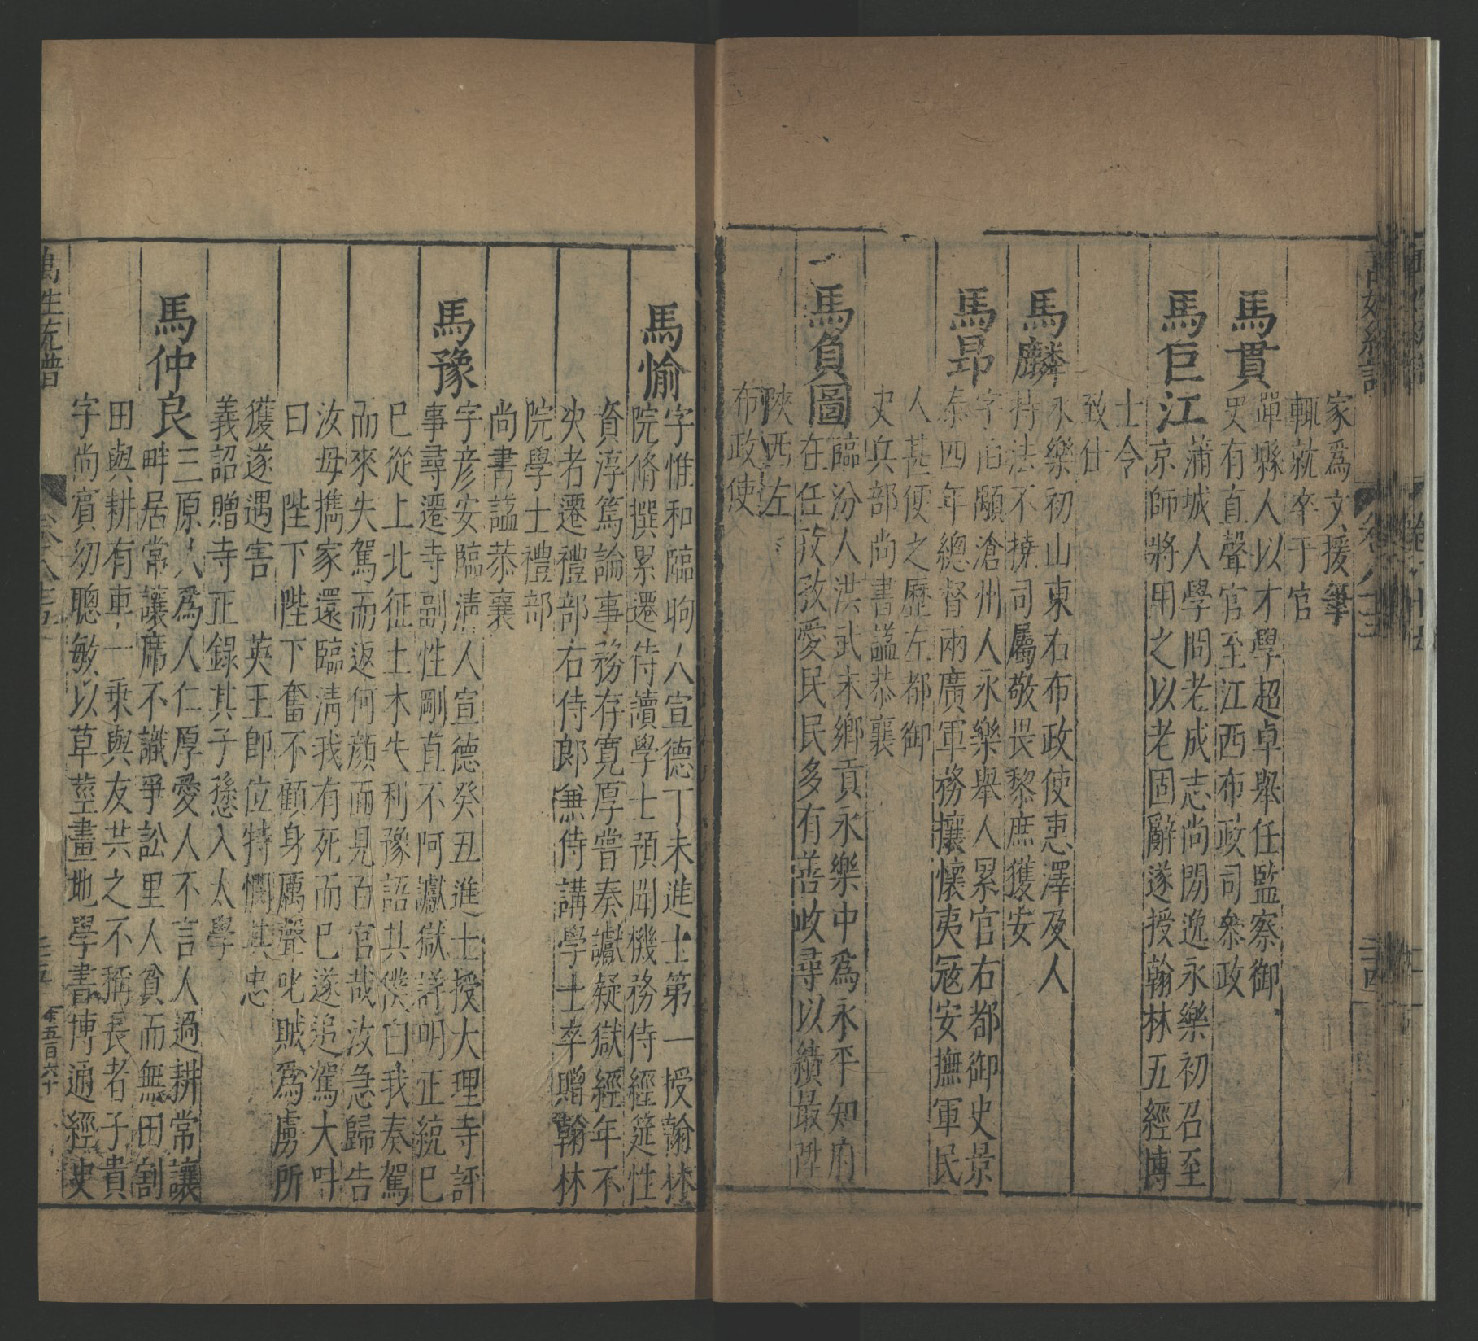 家爲文援筆
輒就卒于官
馬貫
鄲縣人以才學超卓舉任監察御
史有直聲官至江西布政司叅政
馬巨江
蒲城人學問老成志尚閒逸永樂初召至
京師將用之以老固辭遂授翰林五經博
士令
致仕
馬麟
永樂初山東右布政使惠澤及人
持法不撓司屬敬畏黎庶獲安
馬昂
字伯顒滄州人永樂舉人累官右都御史景
泰四年總督兩廣軍務攘懷夷寇安撫軍民
人甚便之歷左都御
史兵部尚書謚恭襄
馬負圖
臨汾人洪武末鄉貢永樂中爲永平知府
在任孜孜愛民民多有善政尋以績最陞
陜西左
布政使
馬愉
字惟和臨朐人宣德丁未進士第一授翰林
院脩撰累遷侍讀學士預聞機務侍經筵性
資淳篤論事務存寛厚嘗奏讞疑獄經年不
决者遷禮部右侍郎兼侍講學士卒贈翰林
院學士禮部
尚書謚恭襄
馬豫
字彦安臨淸人宣德癸丑進士授大理寺評
事尋遷寺副性剛直不阿讞獄詳明正統巳
巳從上北征土木失利豫語其僕曰我奏駕
而來失駕而返何顔面見百官哉汝急歸告
汝母擕家還臨淸我有死而巳遂追駕大呌
曰　陛下陛下奮不顧身厲聲叱賊爲虜所
獲遂遇害　英王卽位特憫其忠
義詔贈寺正錄其子愻入太學
馬仲良
三原人爲人仁厚愛人不言人過耕常讓
畔居常讓席不識爭訟里人貧而無田割
田與耕有車一乘與友共之不稱長者子貴
字尚賓幼聰敏以草莖畫地學書博通經史
萬姓統譜
卷八十五